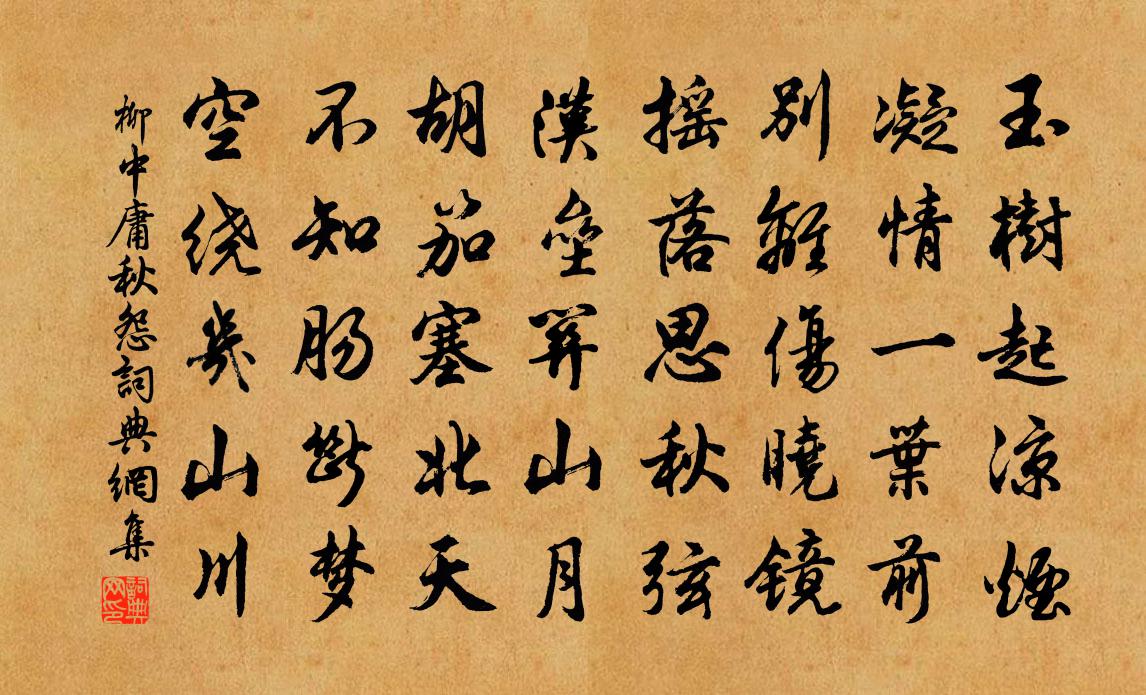 玉樹起涼煙
凝情一葉前
別離傷曉鏡
摇落思秋弦
漢壘關山月
胡笳塞北天
不知肠斷梦
空绕幾山川
柳中庸秋怨詞典網集
詞典网印